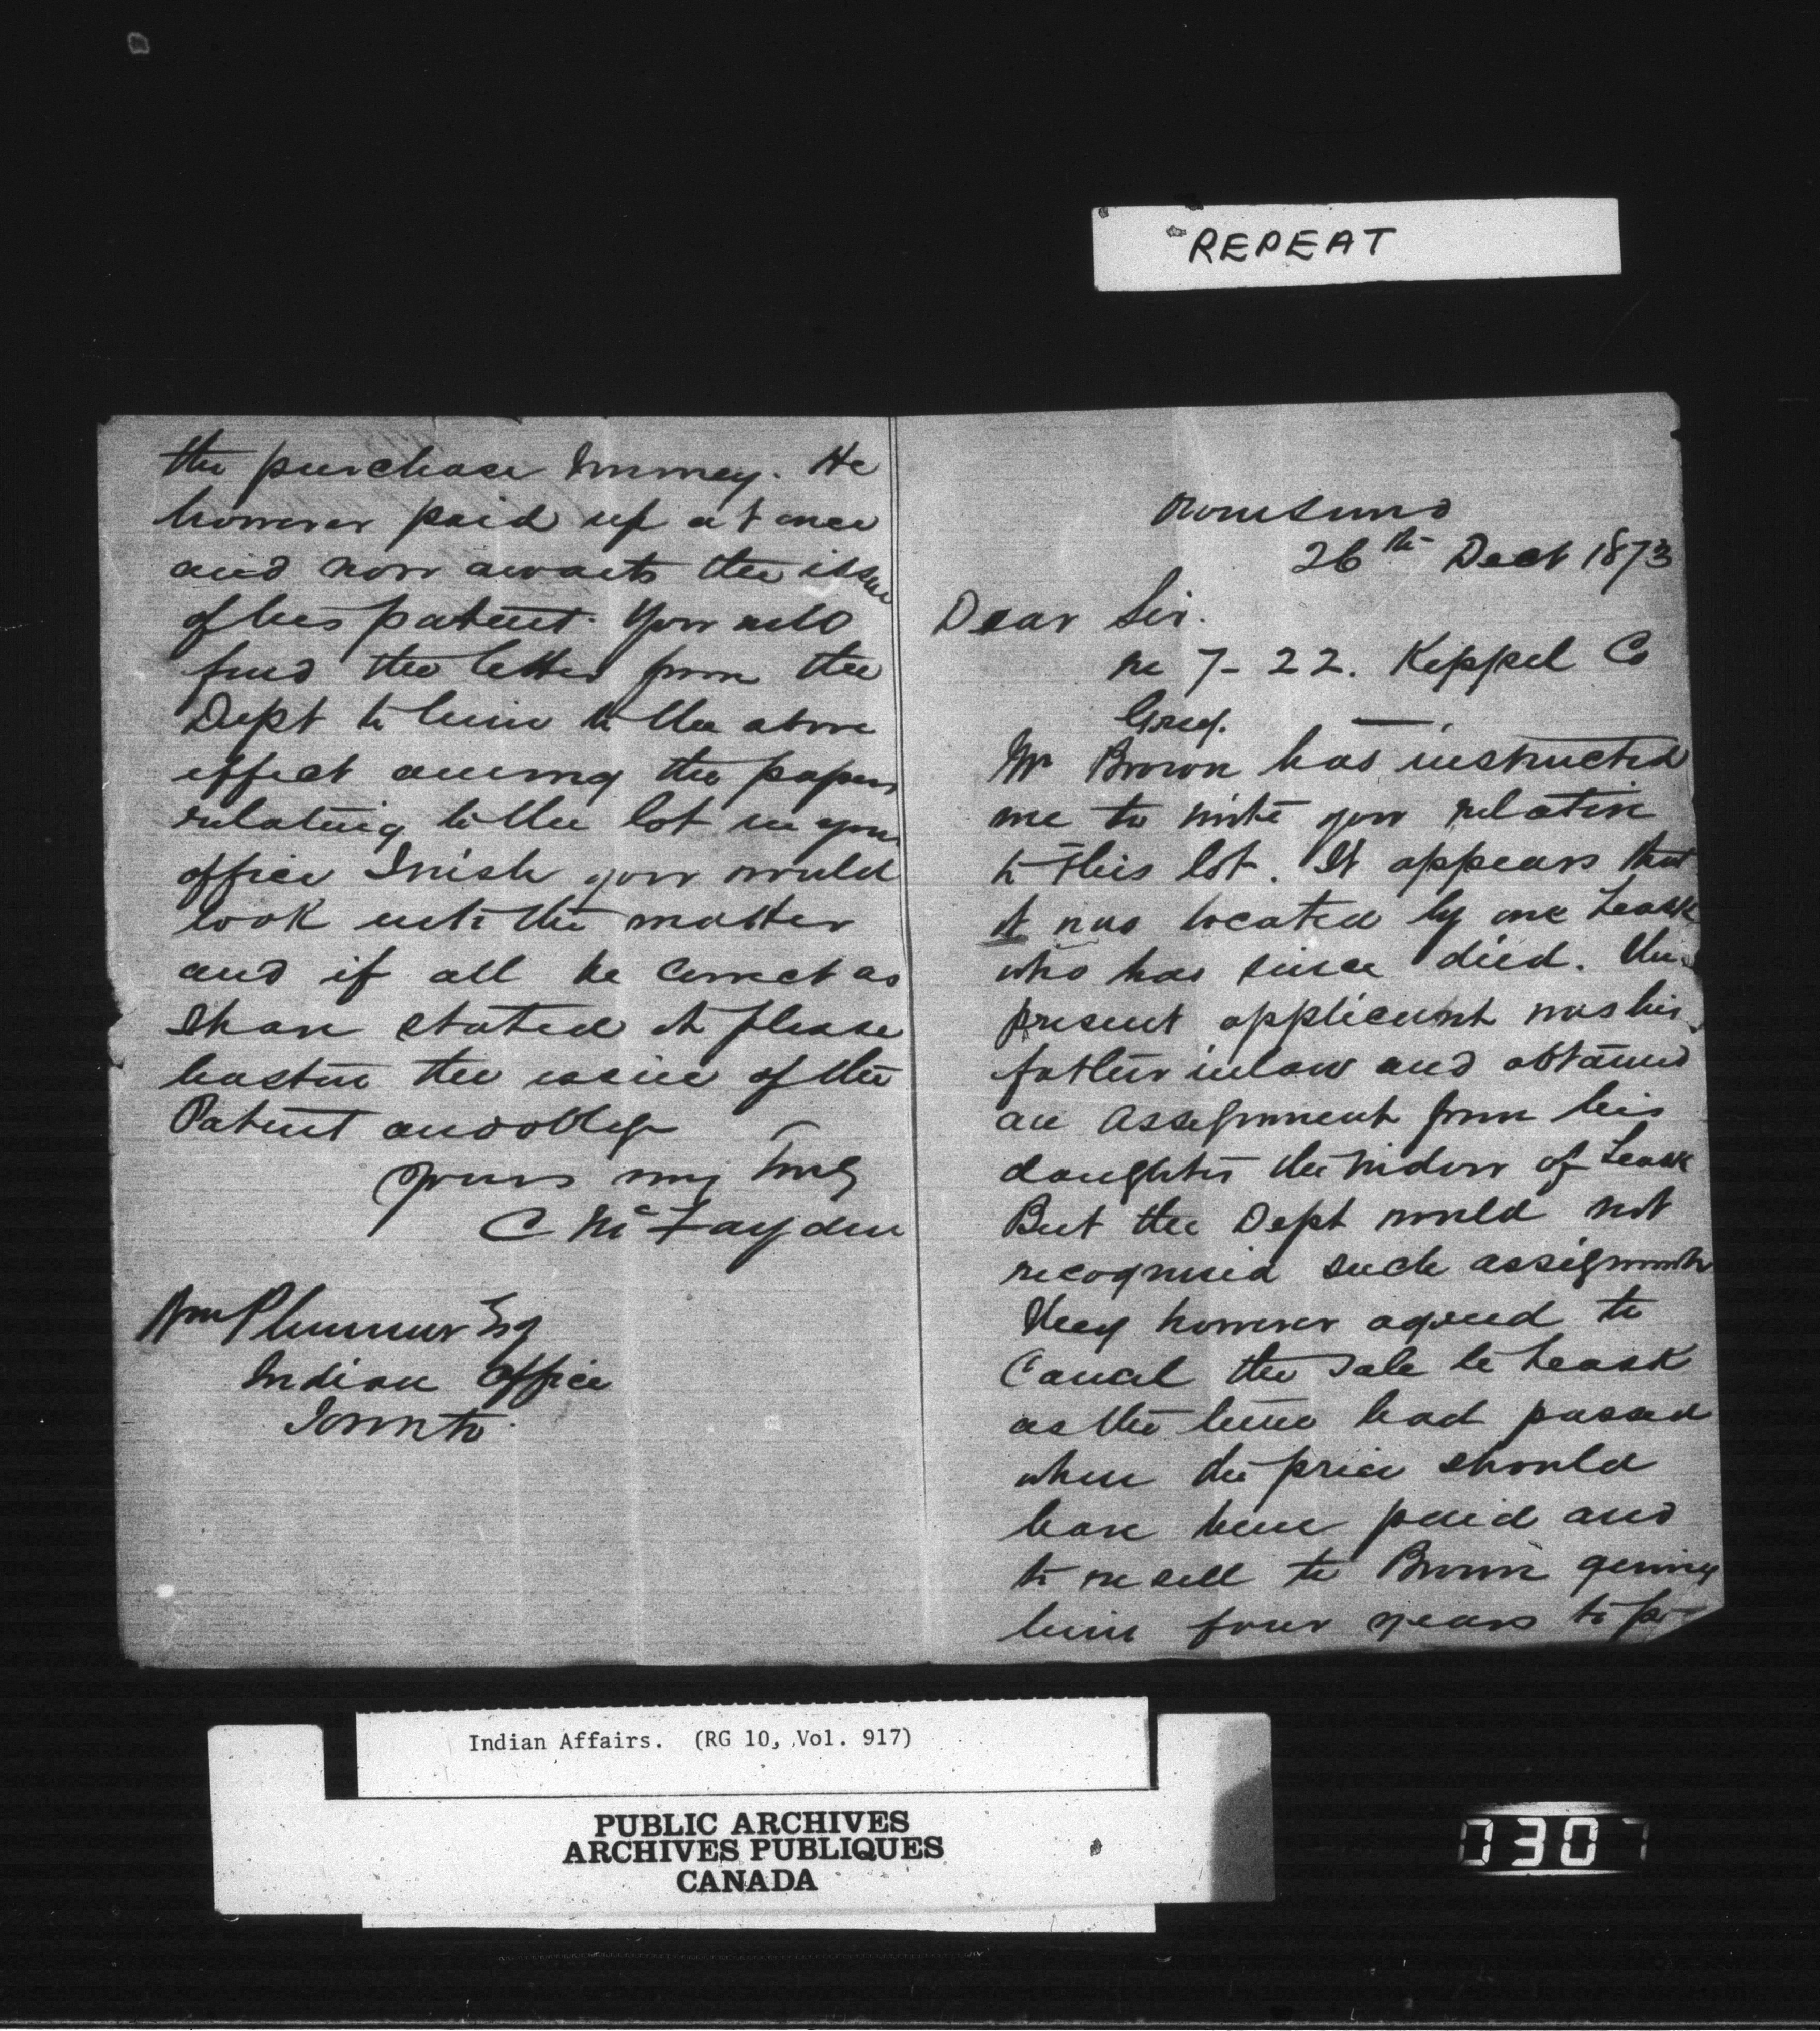 REPEAT
Owen Sound
26th Decr 1873
Dear Sir.
re 7-22. Keppel Co
Grey.
Mr Brown has instructed
me to write you relative
to this lot. It appears that
it was located by one Leask
who has since died. The
present applicant was his
father in law and obtained
an assignment from his
daughter the widow of Leask
But the Dept would not
recognised such assignment
They however agreed to
Cancel the sale to Leask
as the time had passed
when the price should
have been paid and
to resell to Brown giving
him four years to
the purchase money. He
however paid up at once
and now awaits the issue
of his patent. You will
find the letter from the
Dept to him to the above
effect among the papers
relating to the lot in your
office I wish you would
look into the matter
and if all be correct as
I have stated it please
hasten the issue of the
Patent and oblige
Yours very truly
C McFayden
Wm Plummer Esq
Indian Office
Toronto
Indian Affairs. (RG 10, Vol. 917)
PUBLIC ARCHIVES
ARCHIVES PUBLIQUES
CANADA
0307